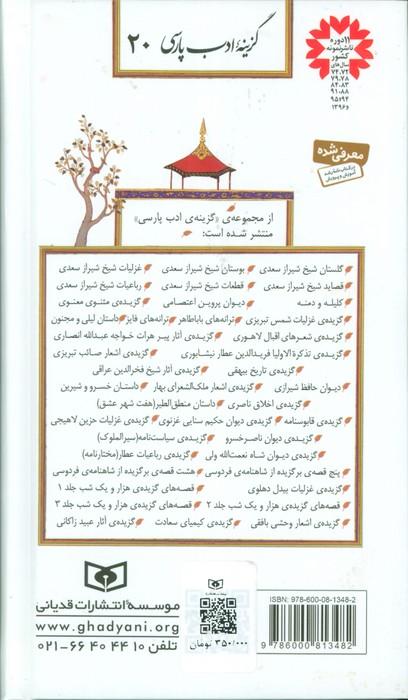 گزینهٔ ادب پارسی ۲۰
۱۱ دوره
ناشر نمونه
کشور
سال‌های
۷۴،۷۲
۷۹،۷۸
۸۴،۸۳
۹۱،۸۸
۹۵،۹۴
۱۳۹۶و
معرفی شده
آموزش و پرورش
از مجموعه‌ی «گزینه‌ی ادب پارسی»
منتشر شده است:
گلستان شیخ شیراز سعدی بوستان شیخ شیراز سعدی غزلیات شیخ شیراز سعدی
قصاید شیخ شیراز سعدی قطعات شیخ شیراز سعدی رباعیات شیخ شیراز سعدی
کلیله و دمنه دیوان پروین اعتصامی گزیده‌ی مثنوی معنوی
گزیده‌ی غزلیات شمس تبریزی ترانه‌های باباطاهر ترانه‌های فایز داستان لیلی و مجنون
گزیده‌ی شعرهای اقبال لاهوری گزیده‌ی آثار پیر هرات خواجه عبدالله انصاری
گزیده‌ی تذکرة الاولیا فریدالدین عطار نیشابوری گزیده‌ی اشعار صائب تبریزی
گزیده‌ی تاریخ بیهقی گزیده‌ی آثار شیخ فخرالدین عراقی
دیوان حافظ شیرازی گزیده‌ی اشعار ملک‌الشعرای بهار داستان خسرو و شیرین
گزیده‌ی اخلاق ناصری داستان منطق‌الطیر(هفت شهر عشق)
گزیده‌ی قابوسنامه گزیده‌ی دیوان حکیم سنایی غزنوی گزیده‌ی غزلیات حزین لاهیجی
گزیده‌ی دیوان ناصرخسرو گزیده‌ی سیاست‌نامه(سیرالملوک)
گزیده‌ی دیوان شاه نعمت‌الله ولی گزیده‌ی رباعیات عطار(مختارنامه)
پنج قصه‌ی برگزیده از شاهنامه‌ی فردوسی هشت قصه‌ی برگزیده از شاهنامه‌ی فردوسی
گزیده‌ی غزلیات بیدل دهلوی قصه‌های گزیده‌ی هزار و یک شب جلد ۱
قصه‌های گزیده‌ی هزار و یک شب جلد ۲ قصه‌های گزیده‌ی هزار و یک شب جلد ۳
گزیده‌ی اشعار وحشی بافقی گزیده‌ی کیمیای سعادت گزیده‌ی آثار عبید زاکانی
موسسهٔ انتشارات قدیانی
www.ghadyani.org
تلفن ۱۰ ۴۴ ۴۰ ۶۶-۰۲۱
۳۵۰/۰۰۰ تومان
ISBN: 978-600-08-1348-2
9 786000 813482